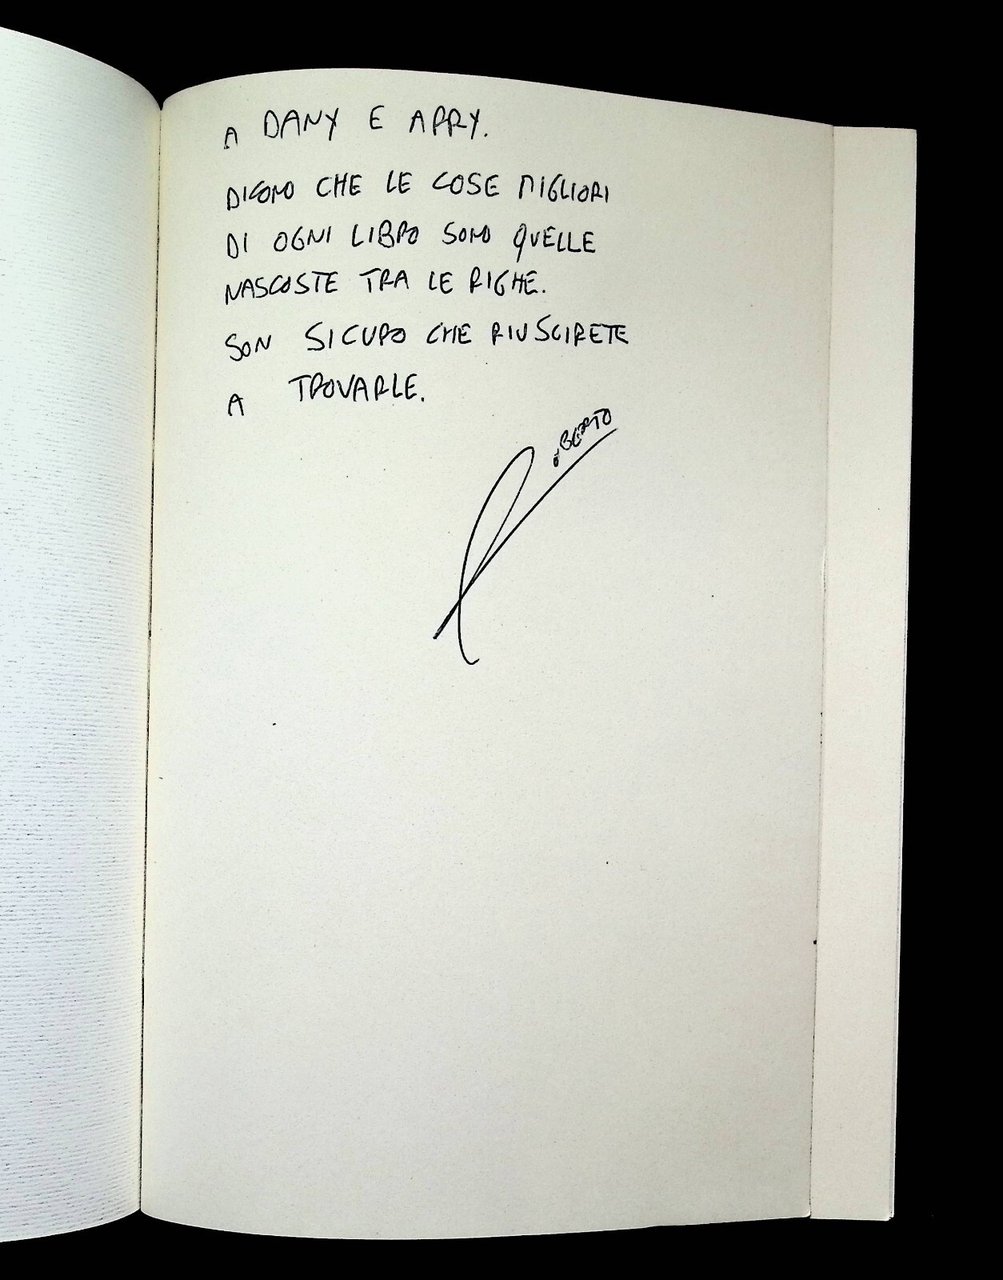 A DANY E ARRY.
DICONO CHE LE COSE MIGLIORI
DI OGNI LIBRO SONO QUELLE
NASCOSTE TRA LE RIGHE.
SON SICURO CHE RIUSCIRETE
A TROVARLE.
ROBERTO